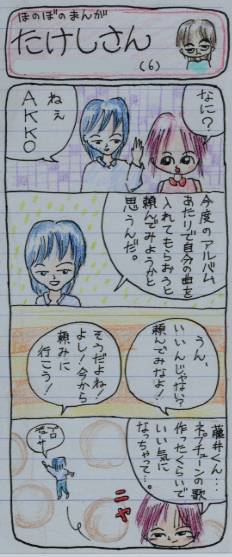 ほのぼのまんが
たけしさん
(6)
なに?
ねぇ
AKKO
今度のアルバム
あたりで自分の曲を
入れてもらおうと
頼んでみようかと
思うんだ。
うん、
いいんじゃない?
頼んでみなよ!
そうだよね!
よし!今から
頼みに
行こう!
藤井くん…
ネプチューンの歌
作ったくらいで
いい気に
なっちゃって…。
ニヤ